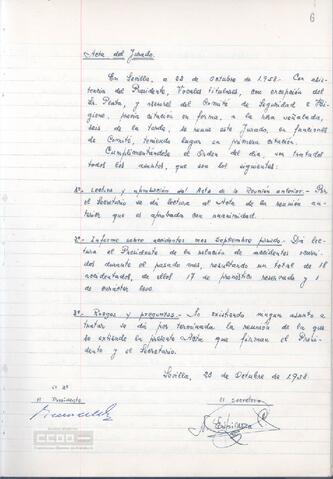 6
Acta del Jurado.
En Sevilla, a 22 de Octubre de 1958.- Con asis-
tencia del Presidente, Vocales titulares, con excepción del
Sr. Plata, y asesor del Comité de Seguridad e Hi-
giene, previa citación en forma, a la hora señalada,
seis de la tarde, se reune este Jurado, en funciones
de Comité, teniendo lugar en primera citación.
Cumplimentándose el Orden del día, son tratados
todos los asuntos, que son los siguientes:
1º.- Lectura y aprobación del Acta de la Reunión anterior.- Por
el Secretario se dió lectura al Acta de la reunión an-
terior que es aprobada con unanimidad.
2º.- Informe sobre accidentes mes Septiembre pasado.- Dá lec-
tura el Presidente de la relación de accidentes ocurri-
dos durante el pasado mes, resultando un total de 18
accidentados, de ellos 17 de pronóstico reservado y 1
de carácter leve.
3º.- Ruegos y preguntas.- No existiendo ningun asunto a
tratar se dió por terminada la reunión de la que
se extiende la presente Acta que firman el Presi-
dente y el Secretario.
Sevilla, 23 de Octubre de 1958.
Vº Bº
El Presidente
El Secretario
CCOO